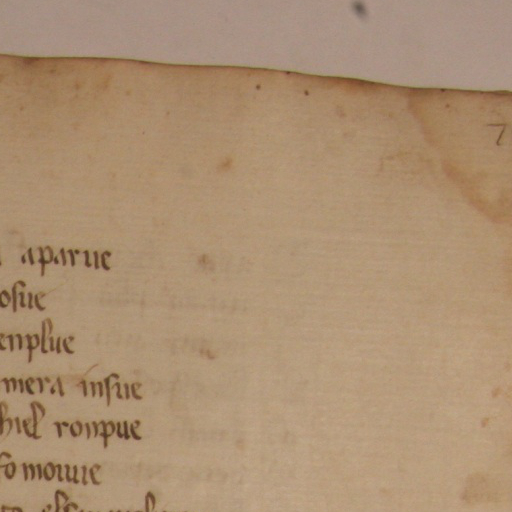 7
aparue
osue
enplue
mera insue
hiel ronpue
fo mouue